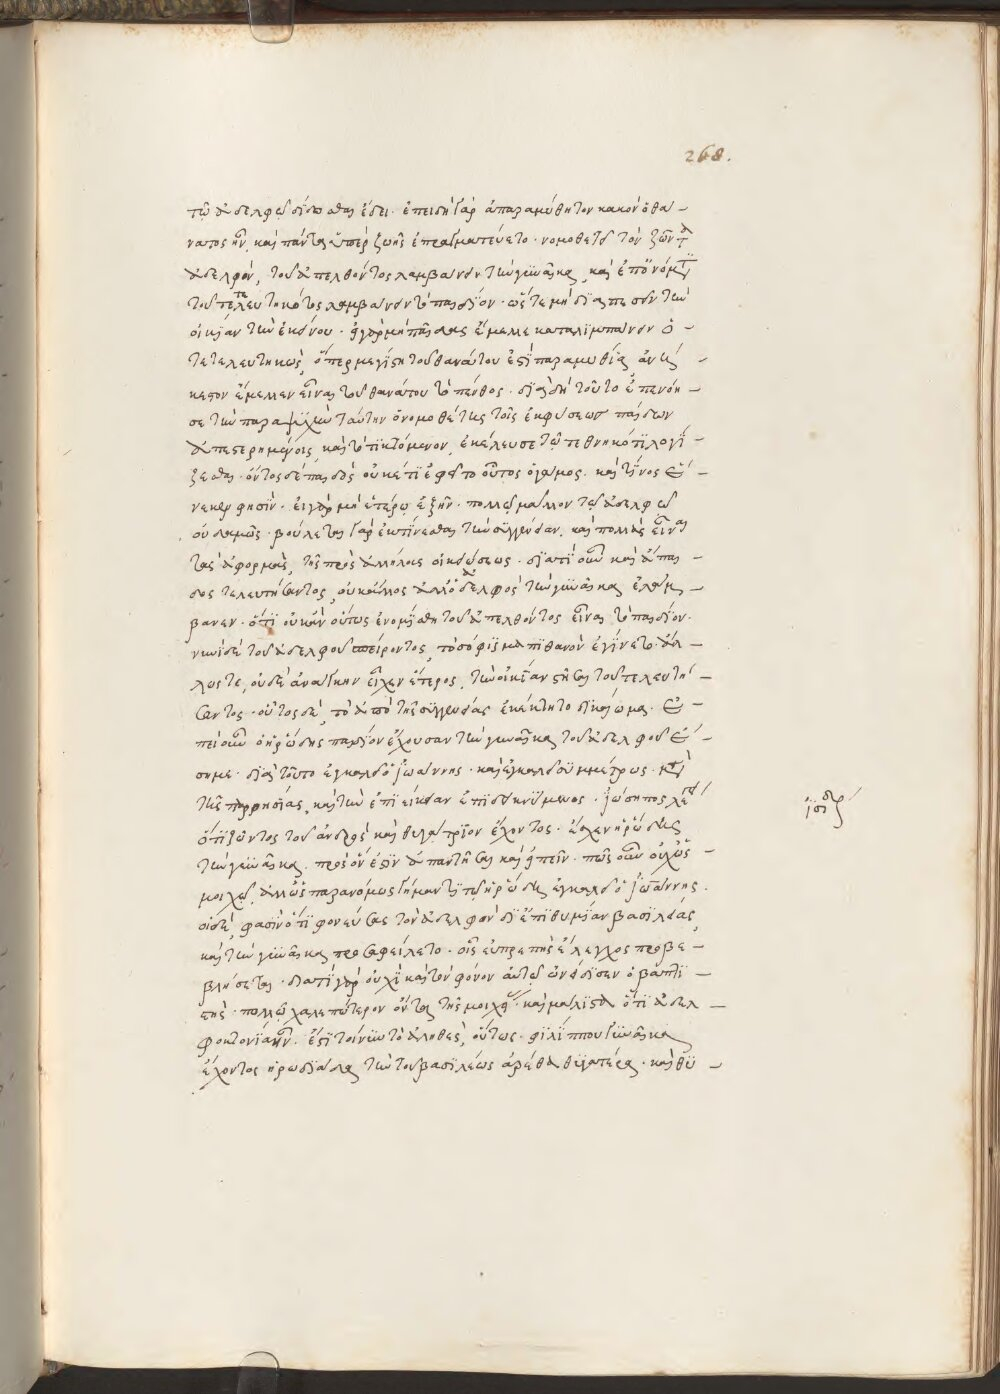 268.
τῷ ἀδελφῷ δίδοσθαι ἔδει· ἐπειδὴ γὰρ ἀπαραμύθητον κακὸν ὁ θά-
νατος ἦν, καὶ πάντα ὑπὲρ ζωῆς ἐπραγματεύετο· νομοθετεῖ τὸν ζῶντα
ἀδελφὸν, τοῦ ἀπελθόντος λαμβάνειν τὴν γυναῖκα, καὶ ἐπ' ὀνόματι
τοῦ τετελευτηκότος λαμβάνειν τὸ παιδίον· ὥστε μὴ διαπεσεῖν τὴν
οἰκίαν τὴν ἐκείνου· εἰ γὰρ μὴ παῖδας ἔμελλε καταλιμπάνειν ὁ
τετελευτηκὼς, ὅπερ μεγίστη τοῦ θανάτου ἐστὶ παραμυθία, ἀνή-
κεστον ἔμελλεν εἶναι τοῦ θανάτου τὸ πένθος· διὰ δὴ τοῦτο ἐπενόη-
σε τὴν παραψυχὴν ταύτην ὁ νομοθέτης τοῖς ἐκ φύσεως παίδων
ἀπεστερημένοις, καὶ τὸ τικτόμενον, ἐκέλευσε τῷ τεθνηκότι λογί-
ζεσθαι· ὄντος δὲ παιδὸς οὐκέτι ἐφεῖτο οὗτος ὁ γάμος· καὶ τίνος ἕ-
νεκεν φησίν· εἰ γὰρ μὴ ἑτέρῳ ἐξῆν· πολλῷ μᾶλλον τῷ ἀδελφῷ
οὐδαμῶς· βούλεται γὰρ ἐκτίνεσθαι τὴν συγγένειαν, καὶ πολλὰς εἶναι
τὰς ἀφορμὰς, τῆς πρὸς ἀλλήλους οἰκειώσεως· διατί οὖν καὶ ἄπαι-
δος τελευτήσαντος, οὐκ ἄλλος ἀλλ' ὁ ἀδελφὸς τὴν γυναῖκα ἐλάμ-
βανεν· ὅτι οὐκ ἂν οὕτως ἐνομίσθη τοῦ ἀπελθόντος εἶναι τὸ παιδίον·
νυνὶ δὲ τοῦ ἀδελφοῦ σπείροντος, τὸ σόφισμα πιθανὸν ἐγίνετο· ἄλ-
λως τε, οὐδὲ ἀνάγκην εἶχεν ἕτερος, τὴν οἰκίαν στῆσαι τοῦ τελευτή-
σαντος· οὗτος δὲ, τὸ ἀπὸ τῆς συγγενείας ἐκέκτητο δικαίωμα· ἐ-
πεὶ οὖν ὁ ἡρώδης παιδίον ἔχουσαν τὴν γυναῖκα τοῦ ἀδελφοῦ ἔ-
γημε· διὰ τοῦτο ἐγκαλεῖ ὁ ἰωάννης· καὶ ἐγκαλεῖ συμμέτρως· μετὰ
τῆς παρρησίας, καὶ τὴν ἐπιείκειαν ἐπιδεικνύμενος· ἰώσηπος λέγει
ὅτι ζῶντος τοῦ ἀνδρὸς καὶ θυγάτριον ἔχοντος· ἔσχεν ἡρώδης
τὴν γυναῖκα· πρὸς ὅν ἐστιν ἀπαντῆσαι καὶ εἰπεῖν· πῶς οὖν οὐχ ὡς
μοιχῷ, ἀλλ' ὡς παρανόμως γήμαντι τῷ ἡρώδῃ ἐγκαλεῖ ὁ ἰωάννης·
οἱ δὲ, φασὶν ὅτι φονεύσας τὸν ἀδελφὸν δι' ἐπιθυμίαν βασιλείας,
καὶ τὴν γυναῖκα προσαφείλετο· οἷς εὐπρεπὴς ἔλεγχος προσβε-
βλήσεται· διατί γὰρ οὐχὶ καὶ τὸν φόνον αὐτῷ ὠνείδισεν ὁ βαπτι-
στὴς· πολλῷ χαλεπώτερον ὄντα τῆς μοιχείας· καὶ μάλιστα ὅτι ἀδελ-
φοκτονία ἦν· ἔστι τοίνυν τὸ ἀληθὲς, οὕτως· φιλίππου γυναῖκα
ἔχοντος ἡρωδιάδα τὴν τοῦ βασιλέως ἀρέθα θυγατέρα· καὶ θυ-
ἰσιδώρ